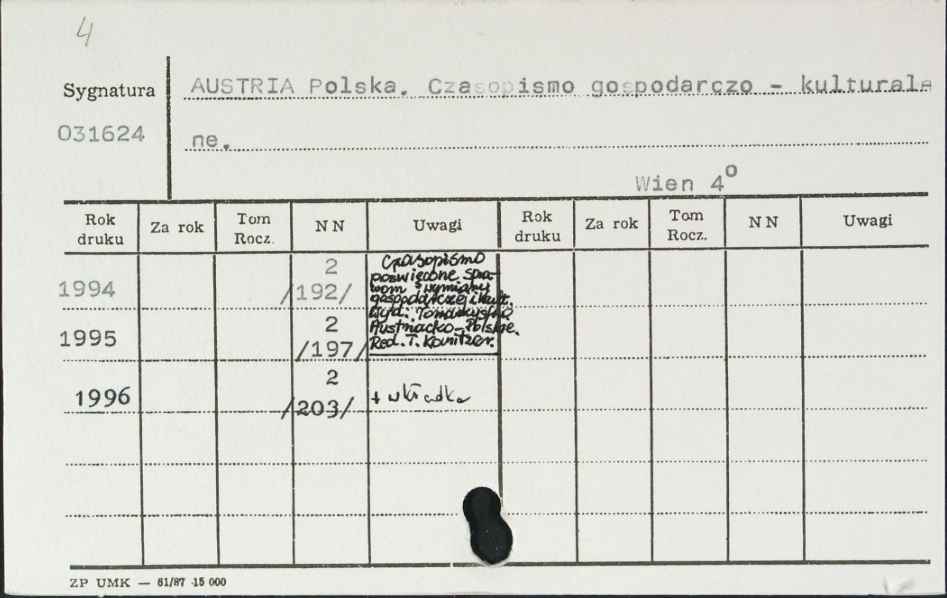 4
Sygnatura AUSTRIA Polska. Czasopismo gospodarczo - kultural=
031624 ne.
Wien 4°
Rok druku Za rok Tom Rocz. NN Uwagi Rok druku Za rok Tom Rocz. NN Uwagi
1994 2 /192/
Czasopismo
poświęcone spra-
wom wymiany
gospodarczej i kult.
Wyd.: Towarzystwo
Austriacko-Polskie.
Red. T. Kanitzer.
1995 2 /197/
1996 2 /203/ + wkładka
ZP UMK — 61/87 15 000